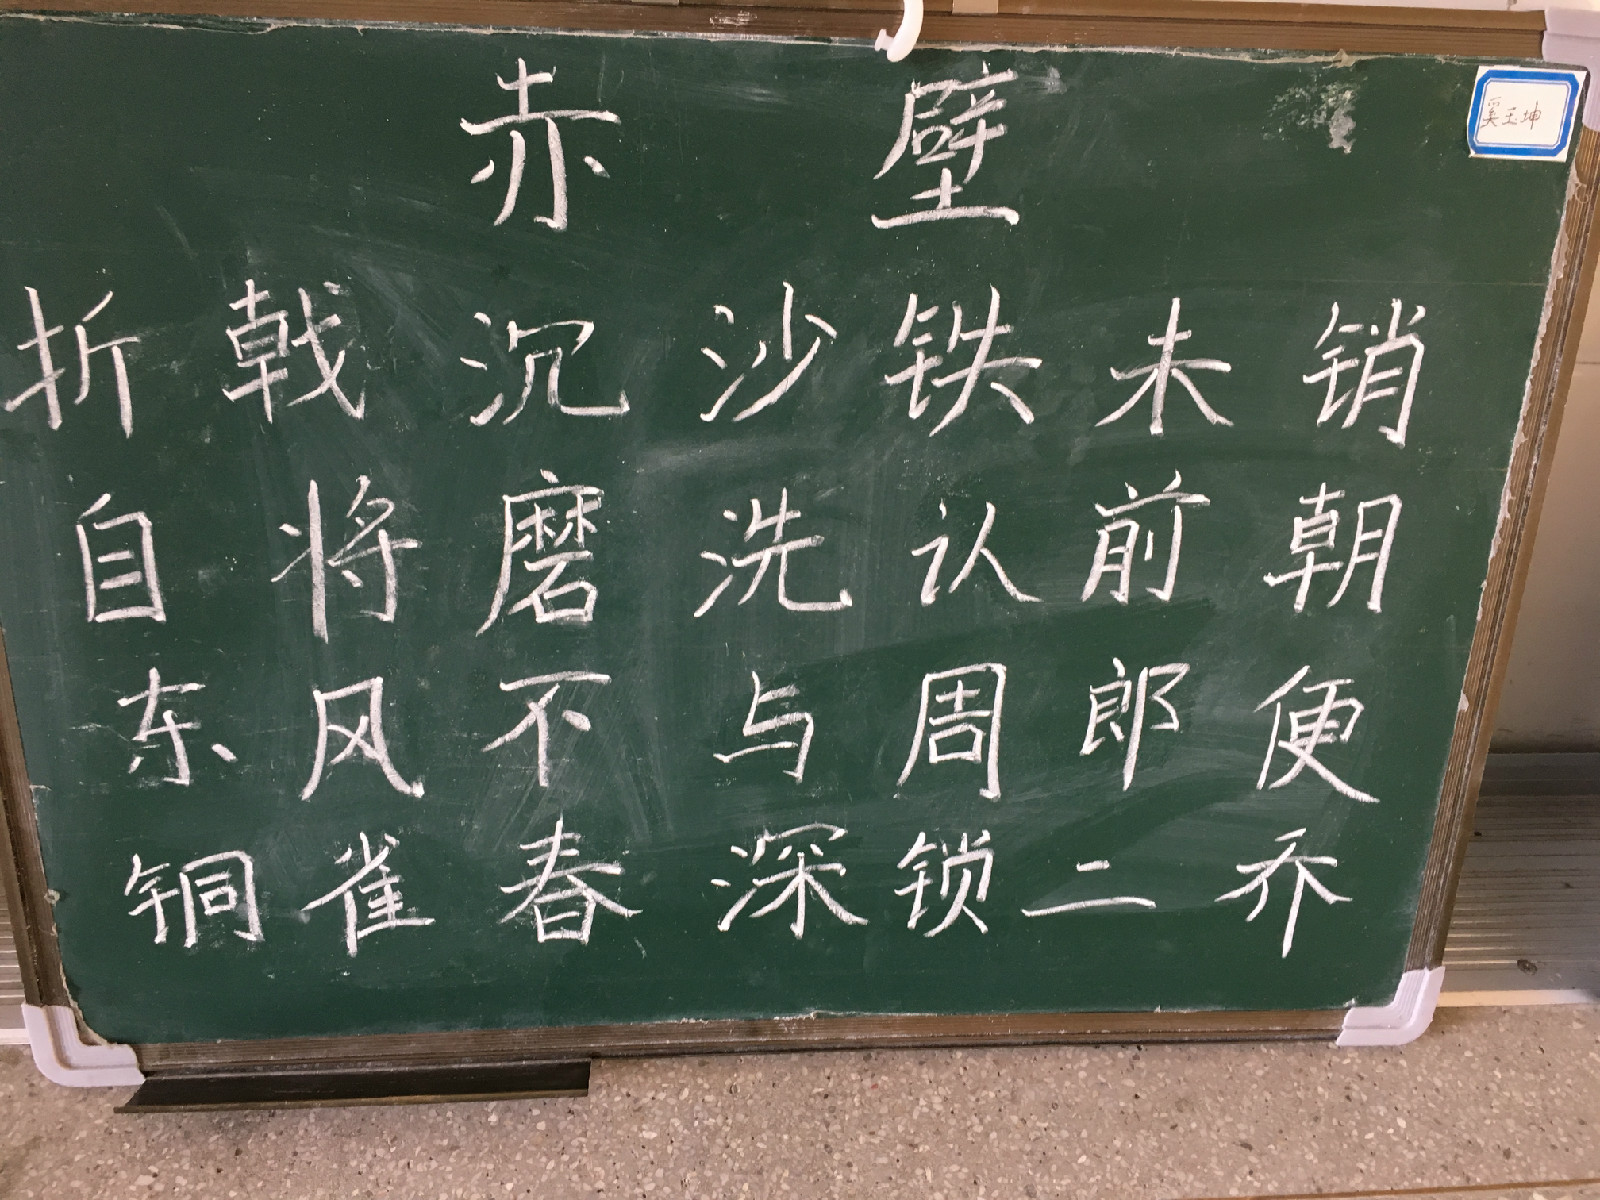 赤壁
奚玉坤
折戟沉沙铁未销
自将磨洗认前朝
东风不与周郎便
铜雀春深锁二乔